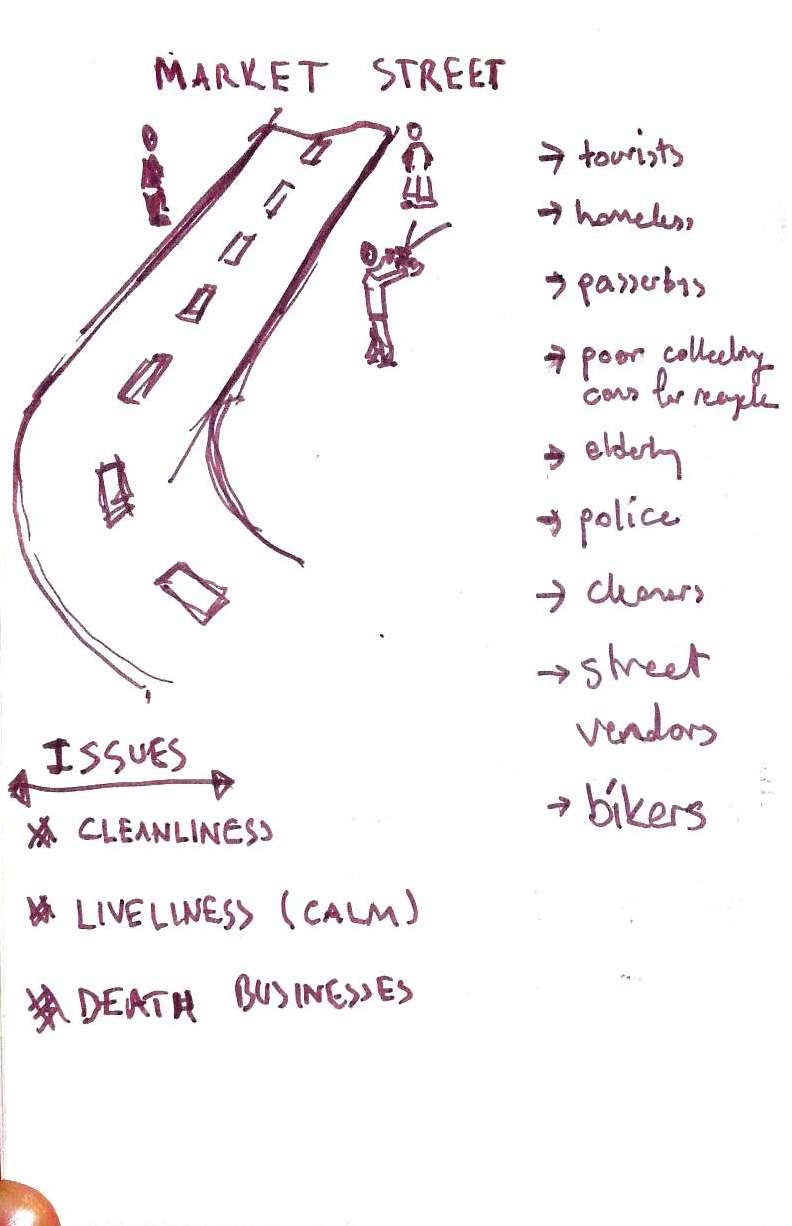 MARKET STREET
→ tourists
→ homeless
→ passerbys
→ poor collecting
cans for recycle
→ elderly
→ police
→ cleaners
→ street
vendors
→ bikers
ISSUES
CLEANLINESS
LIVELINESS (CALM)
DEATH BUSINESSES